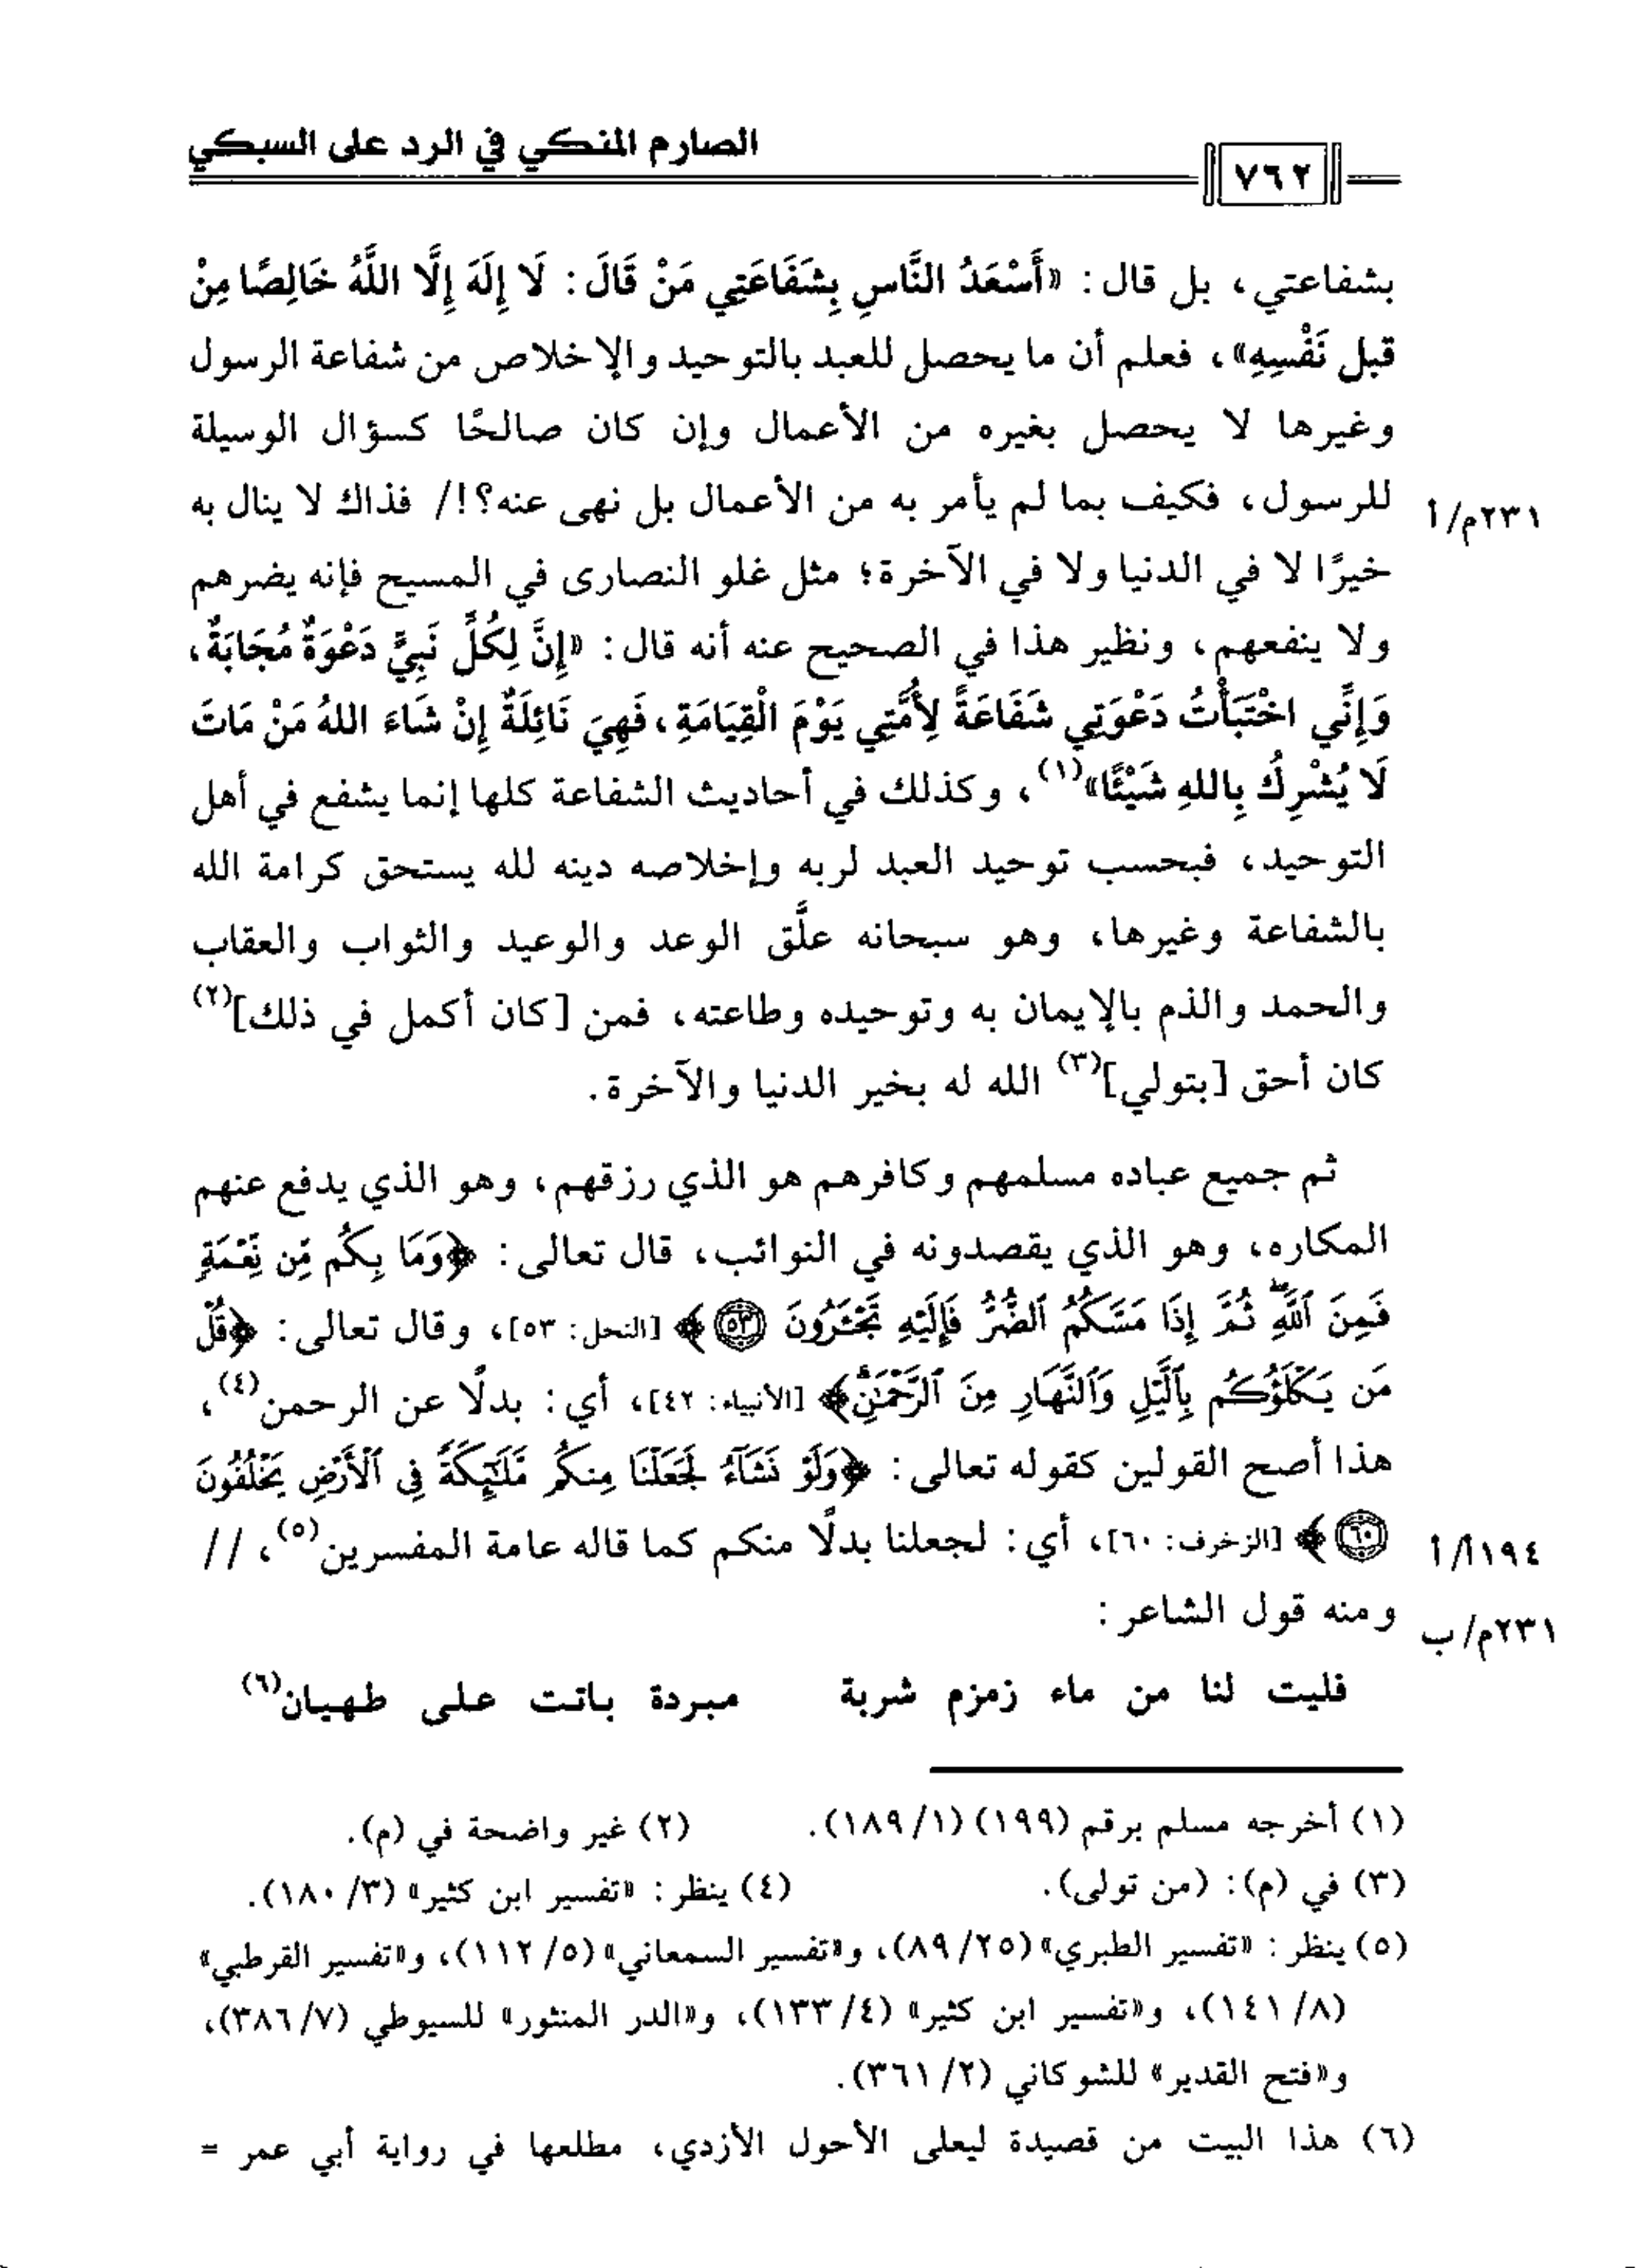 الصارم المنكي في الرد على السبكي
٧٦٢
بشفاعتي، بل قال: «أَسْعَدُ النَّاسِ بِشَفَاعَتِي مَنْ قَالَ: لَا إِلَهَ إِلَّا اللَّهُ خَالِصًا مِنْ
قبل نَفْسِهِ»، فعلم أن ما يحصل للعبد بالتوحيد والإخلاص من شفاعة الرسول
وغيرها لا يحصل بغيره من الأعمال وإن كان صالحًا كسؤال الوسيلة
للرسول، فكيف بما لم يأمر به من الأعمال بل نهى عنه؟!/ فذاك لا ينال به
٢٣١م/أ
خيرًا لا في الدنيا ولا في الآخرة؛ مثل غلو النصارى في المسيح فإنه يضرهم
ولا ينفعهم، ونظير هذا في الصحيح عنه أنه قال: «إِنَّ لِكُلِّ نَبِيٍّ دَعْوَةٌ مُجَابَةٌ،
وَإِنِّي اخْتَبَأْتُ دَعْوَتِي شَفَاعَةً لِأُمَّتِي يَوْمَ الْقِيَامَةِ، فَهِيَ نَائِلَةٌ إِنْ شَاءَ اللهُ مَنْ مَاتَ
لَا يُشْرِكُ بِاللهِ شَيْئًا»(١)، وكذلك في أحاديث الشفاعة كلها إنما يشفع في أهل
التوحيد، فبحسب توحيد العبد لربه وإخلاصه دينه لله يستحق كرامة الله
بالشفاعة وغيرها، وهو سبحانه علَّق الوعد والوعيد والثواب والعقاب
والحمد والذم بالإيمان به وتوحيده وطاعته، فمن [كان أكمل في ذلك](٢)
كان أحق [بتولي](٣) الله له بخير الدنيا والآخرة.
ثم جميع عباده مسلمهم وكافرهم هو الذي رزقهم، وهو الذي يدفع عنهم
المكاره، وهو الذي يقصدونه في النوائب، قال تعالى: ﴿وَمَا بِكُم مِّن نِّعْمَةٍ
فَمِنَ ٱللَّهِۖ ثُمَّ إِذَا مَسَّكُمُ ٱلضُّرُّ فَإِلَيْهِ تَجْـَٔرُونَ ٥٣﴾ [النحل: ٥٣]، وقال تعالى: ﴿قُلْ
مَن يَكْلَؤُكُم بِٱلَّيْلِ وَٱلنَّهَارِ مِنَ ٱلرَّحْمَٰنِۚ﴾ [الأنبياء: ٤٢]، أي: بدلًا عن الرحمن(٤)،
هذا أصح القولين كقوله تعالى: ﴿وَلَوْ نَشَآءُ لَجَعَلْنَا مِنكُم مَّلَٰٓئِكَةً فِى ٱلْأَرْضِ يَخْلُفُونَ
٦٠﴾ [الزخرف: ٦٠]، أي: لجعلنا بدلًا منكم كما قاله عامة المفسرين(٥)، //
١٩٤أ/أ
ومنه قول الشاعر:
٢٣١م/ب
فليت لنا من ماء زمزم شربة مبردة باتت على طهيان(٦)
(١) أخرجه مسلم برقم (١٩٩) (١/ ١٨٩). (٢) غير واضحة في (م).
(٣) في (م): (من تولى). (٤) ينظر: «تفسير ابن كثير» (٣/ ١٨٠).
(٥) ينظر: «تفسير الطبري» (٢٥/ ٨٩)، و«تفسير السمعاني» (٥/ ١١٢)، و«تفسير القرطبي»
(٨/ ١٤١)، و«تفسير ابن كثير» (٤/ ١٣٣)، و«الدر المنثور» للسيوطي (٧/ ٣٨٦)،
و«فتح القدير» للشوكاني (٢/ ٣٦١).
(٦) هذا البيت من قصيدة ليعلى الأحول الأزدي، مطلعها في رواية أبي عمر =